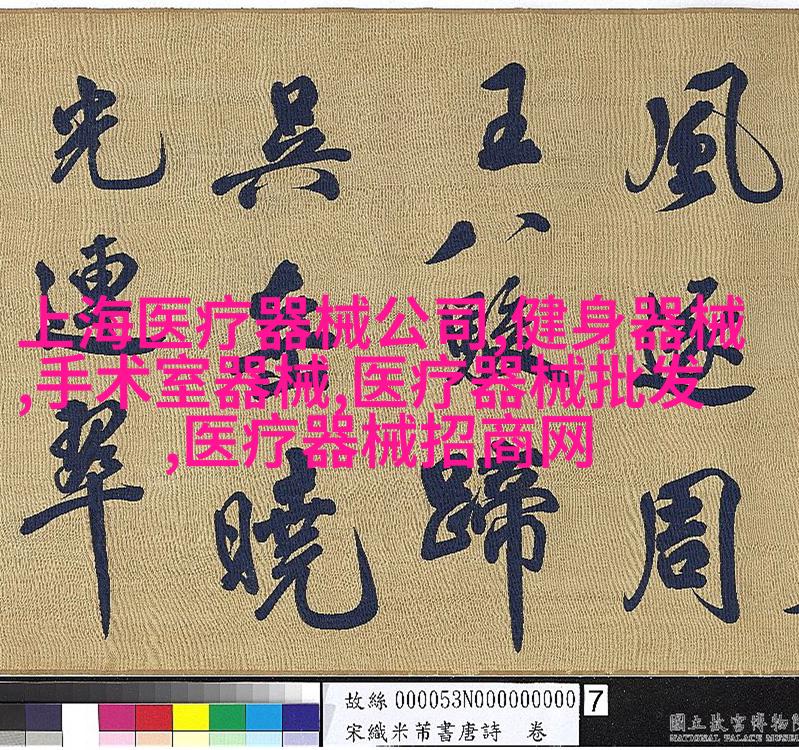 風逐周
王八駿蹄
吳曉
光連翠
上海医疗器械公司,健身器械
,手术室器械,医疗器械批发
,医疗器械招商网
故絲 000053N000000000 7
宋織米芾書唐詩 卷
國立故宮博物院
NATIONAL PALACE MUSEUM